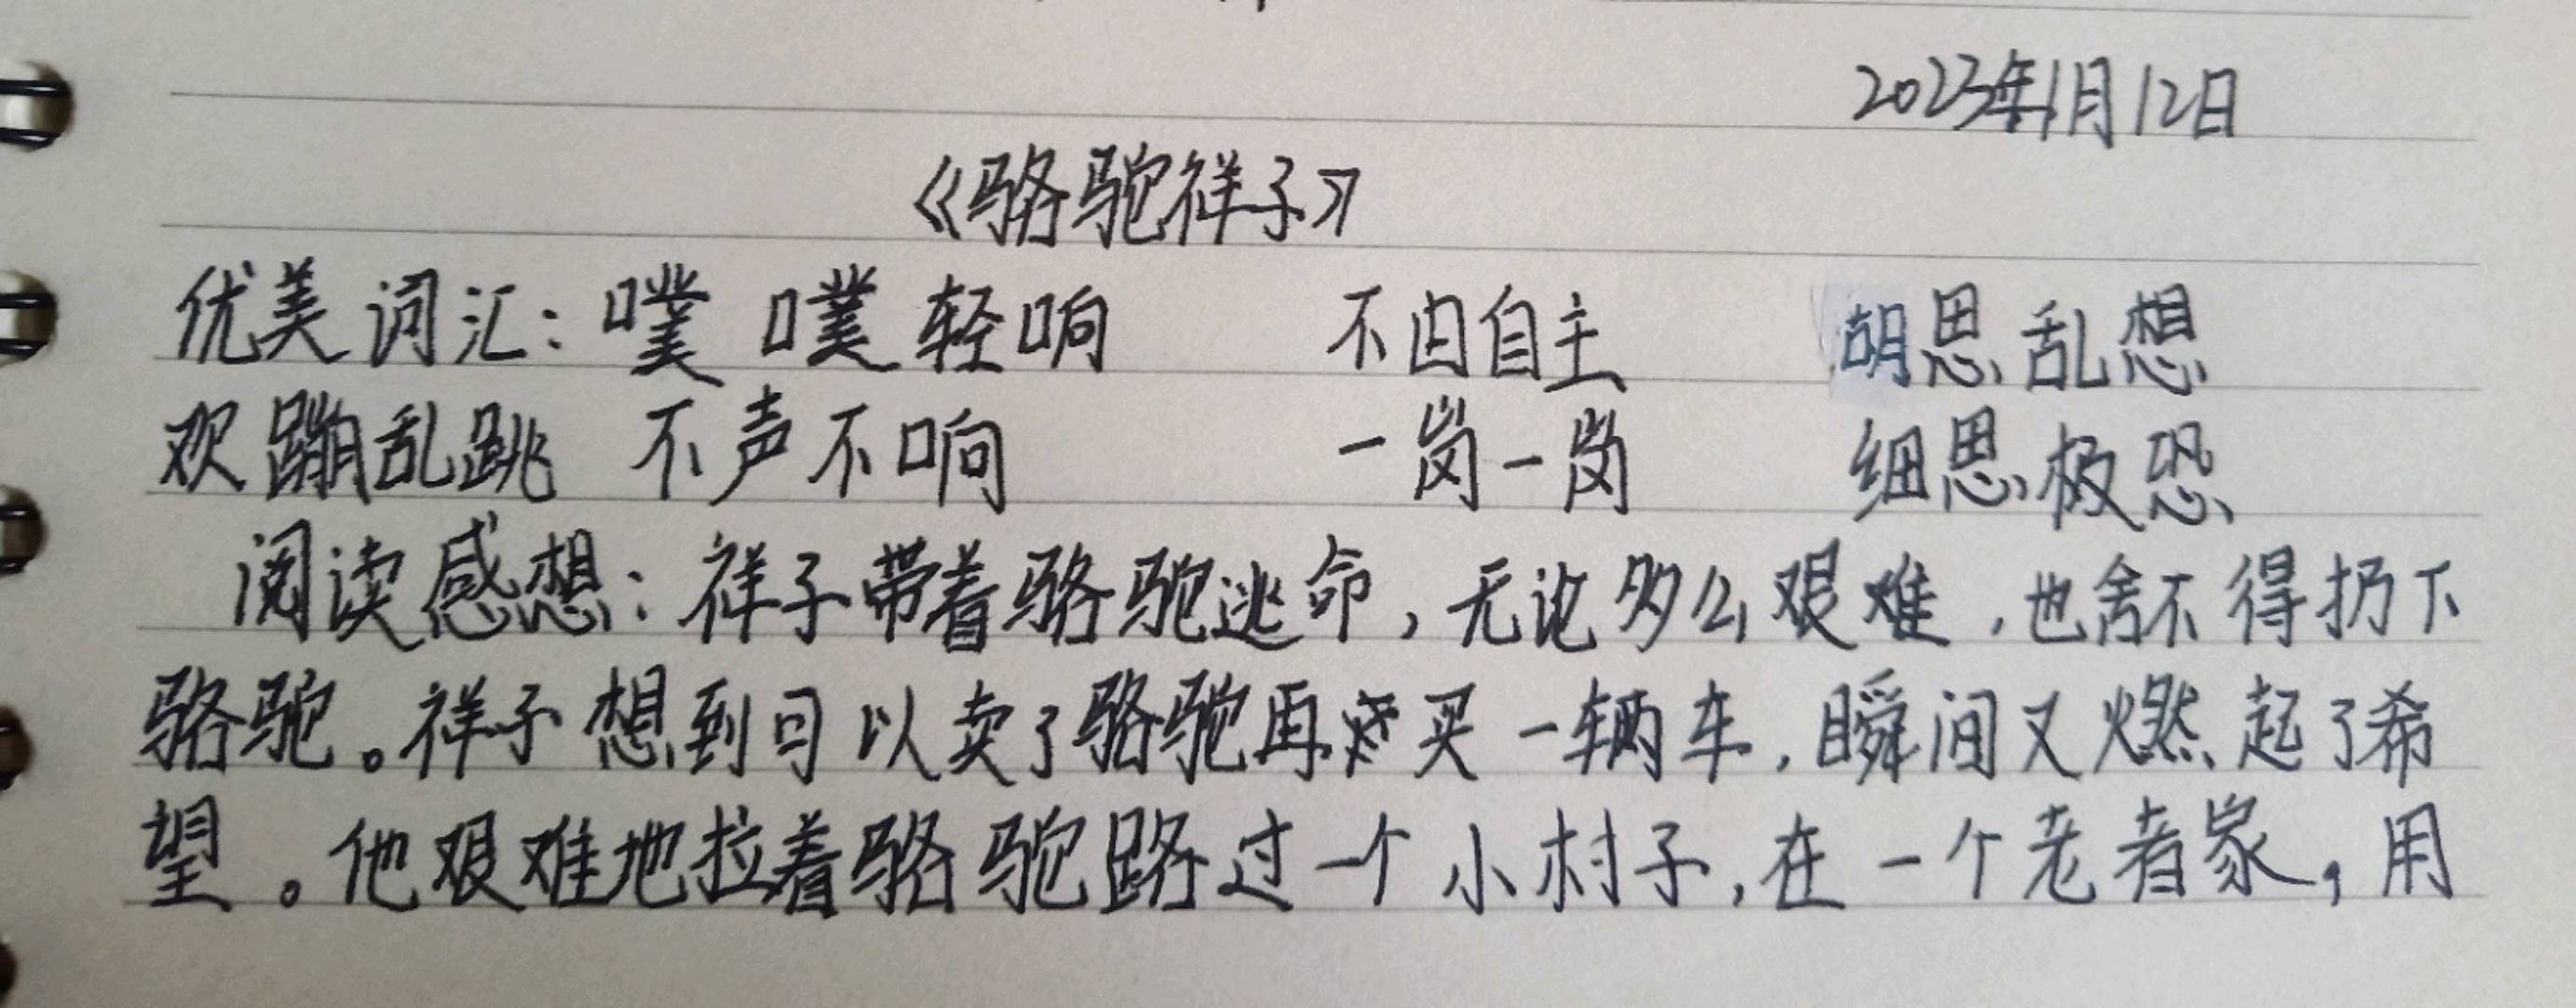 2023年1月12日
《骆驼祥子》
优美词汇：噗噗轻响 不由自主 胡思乱想
欢蹦乱跳 不声不响 一岗一岗 细思极恐
阅读感想：祥子带着骆驼逃命，无论多么艰难，也舍不得扔下
骆驼。祥子想到可以卖了骆驼再买一辆车，瞬间又燃起了希
望。他艰难地拉着骆驼路过一个小村子，在一个老者家，用